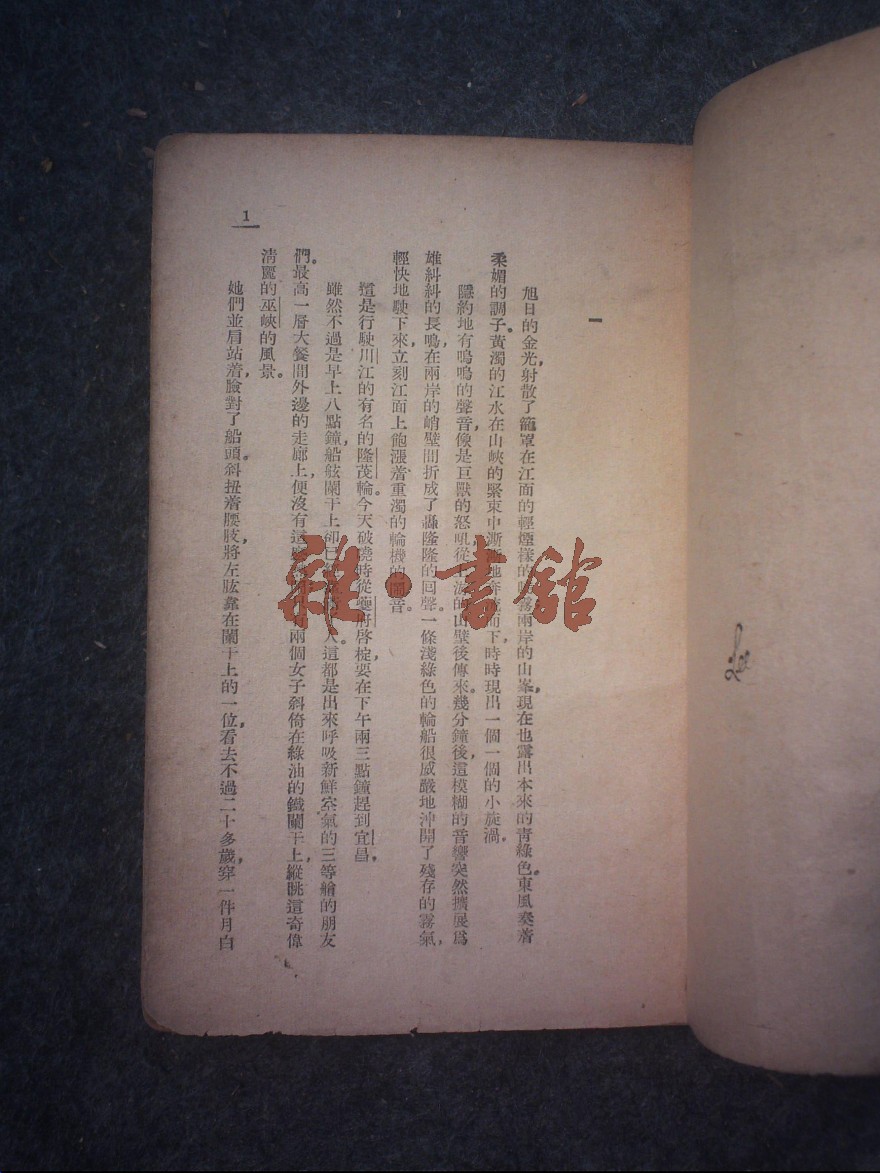 一
旭日的金光，射散了籠罩在江面的輕煙樣的霧，兩岸的山峯，現在也露出本來的青綠色。東風奏着
柔媚的調子。黃濁的江水在山峽的緊束中澌澌地奔流而下，時時現出一個一個的小旋渦。
隱約地有嗚嗚的聲音，像是巨獸的怒吼，從上游的山壁後傳來。幾分鐘後，這模糊的音響突然擴展爲
雄糾糾的長鳴，在兩岸的峭壁間折成了轟隆隆的回聲。一條淺綠色的輪船很威嚴地沖開了殘存的霧氣，
輕快地駛下來，立刻江面上飽漲着重濁的輪機的鬧音。
這是行駛川江的有名的隆茂輪。今天破曉時從夔府啓椗，要在下午兩三點鐘趕到宜昌。
雖然不過是早上八點鐘，船舷闌干上卻已人。這都是出來呼吸新鮮空氣的三等艙的朋友
們。最高一層大餐間外邊的走廊上，便沒有這兩個女子斜倚在綠油的鐵闌干上，縱眺這奇偉
清麗的巫峽的風景。
她們並肩站着，臉對了船頭。斜扭着腰肢，將左肱靠在闌干上的一位，看去不過二十多歲，穿一件月白
1
雜·書館